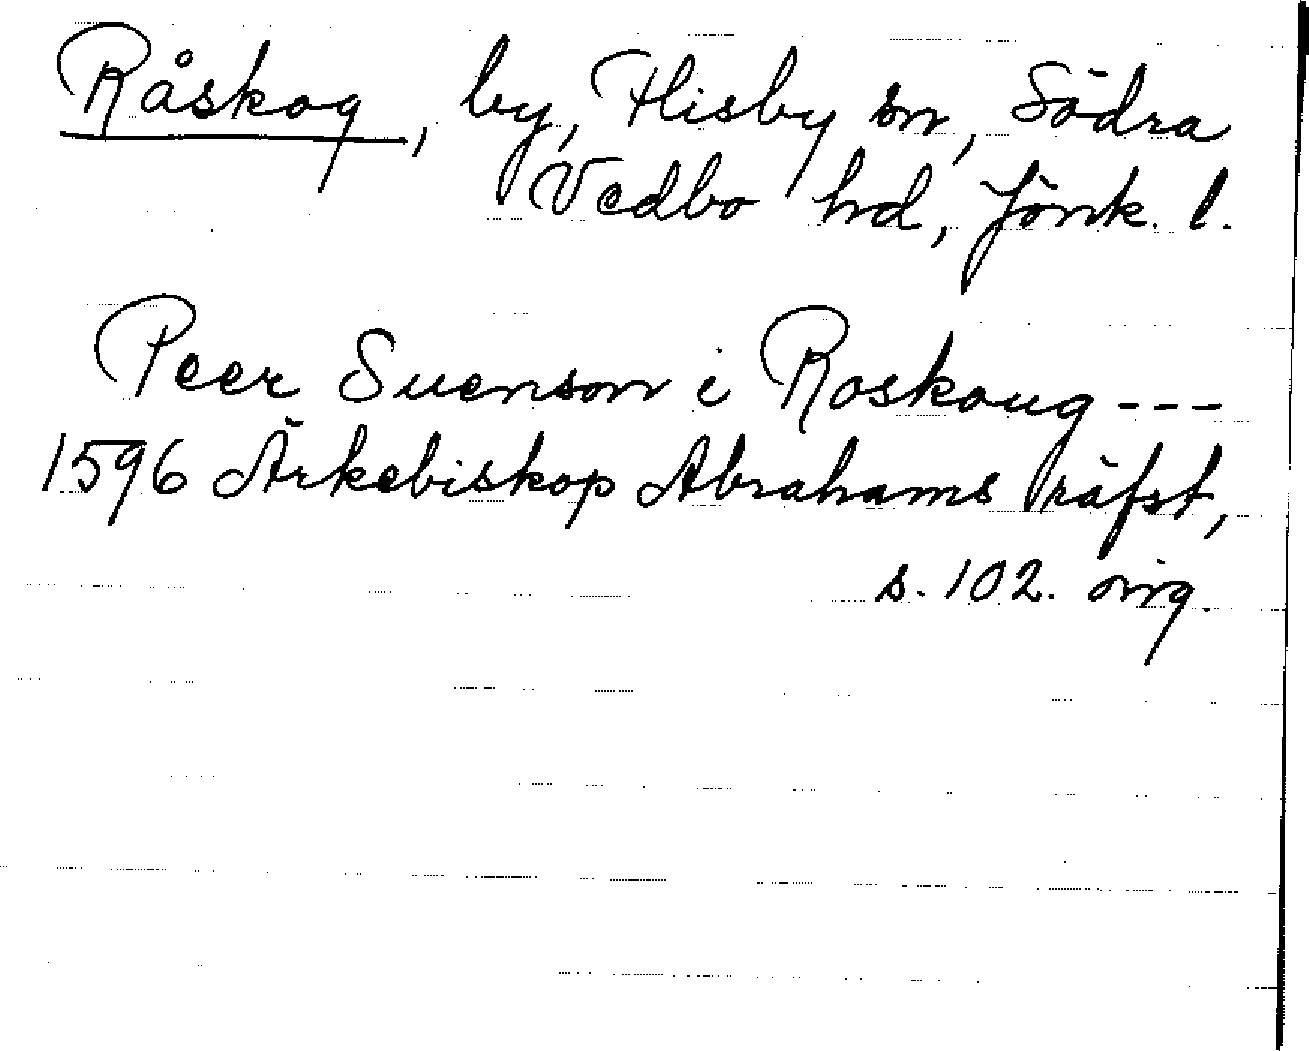 Råskog, by, Flisby sn, Södra
Vedbo hd, Jönk. l.
Peer Suenson i Roskoug ---
1596 Ärkebiskop Abrahams räfst,
s. 102. orig.